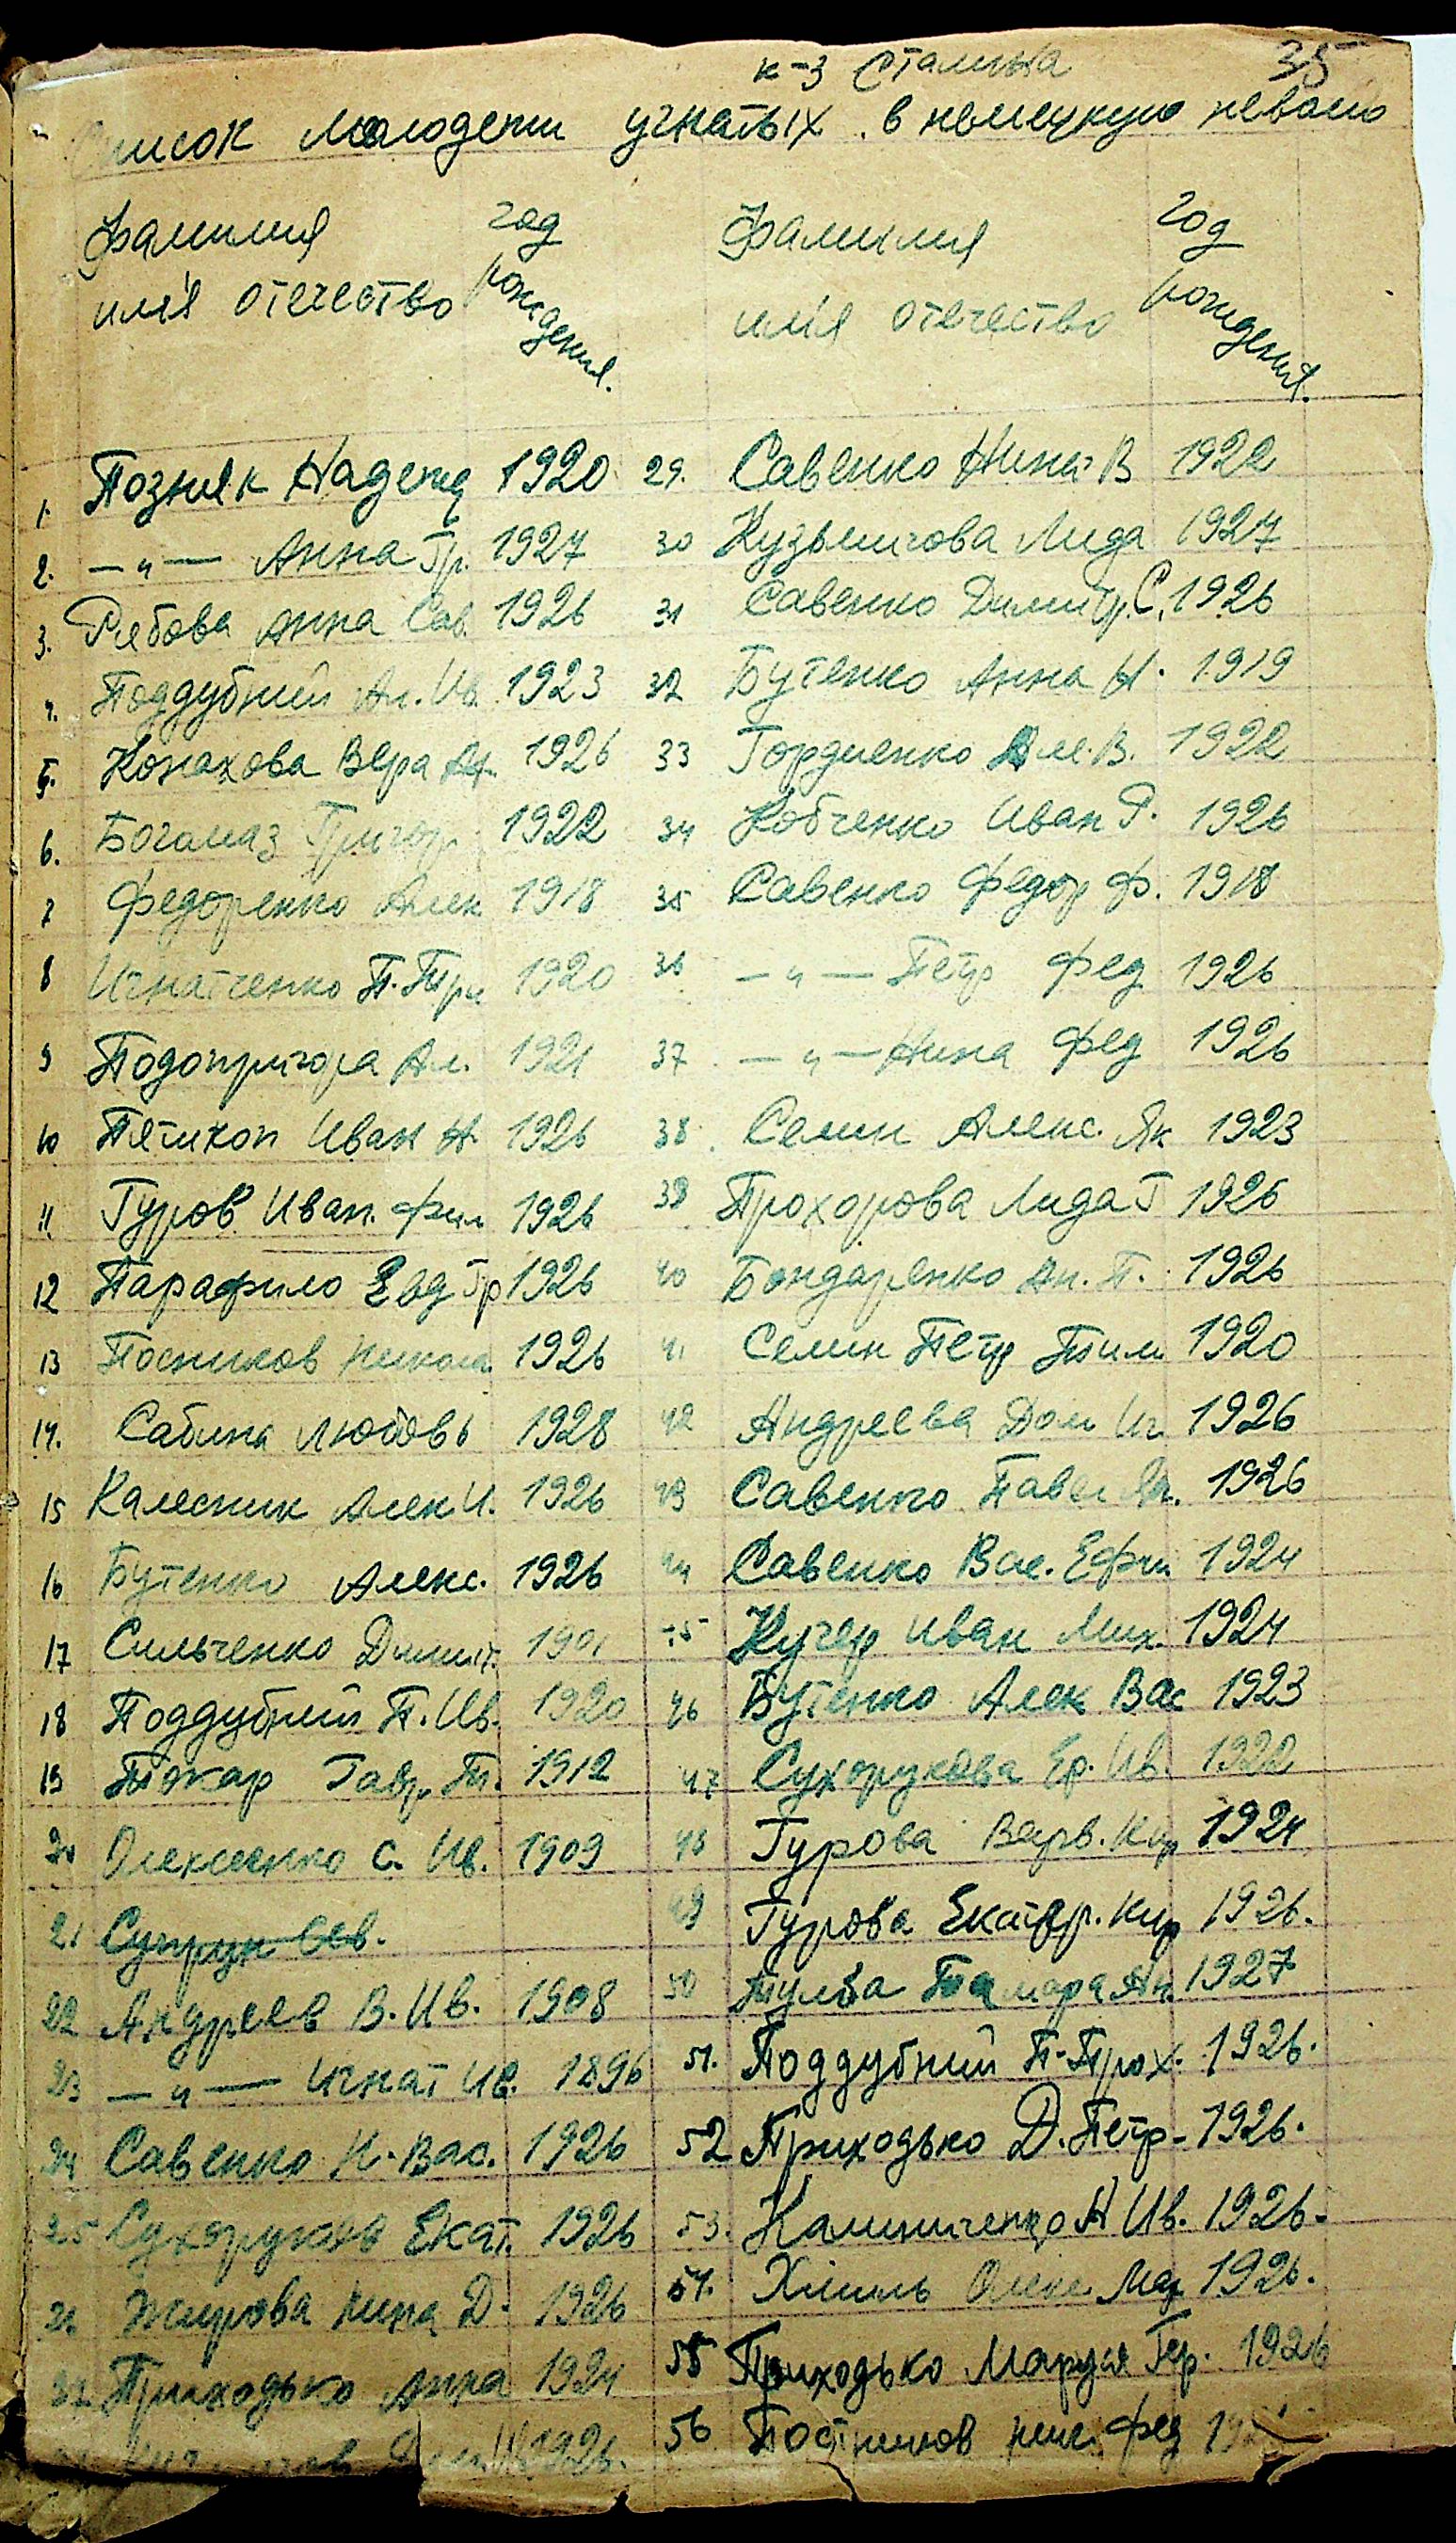 к-з Сталина 35
Список молодежи угнатых в немецкую неволю
Фамилия год
имя отечество рождения.
Фамилия год
имя отечество рождения.
1. Позняк Надежд 1920
2. —„— Анна Гр. 1927
3. Рябова Анна Сав. 1926
4. Поддубний Ан. Ив. 1923
5. Конахова Вера 1926
6. Богомаз Григор. 1922
7 Федоренко Алек 1918
8 Игнатченко П. Три 1920
9 Подопригора Ал. 1921
10 Пятикоп Иван Н. 1926
11 Гуров Иван. Фил 1926
12 Парафило Евд Гр 1926
13 Посников Никола 1926
14. Сабина Любовь 1928
15 Калесник Алек И. 1926
16 Бутенко Алекс. 1926
17 Сильченко Димит. 1901
18 Поддубний П. Ив. 1920
19 Токар Гавр. Т. 1912
20 Олексенко С. Ив. 1909
21 Супрун
22 Андреев В. Ив. 1908
23 —„— Игнат Ив. 1896
24 Савенко И. Вас. 1926
25 Сухорукова Екат. 1926
26 Жирова Нина Д. 1926
27 Приходько Анна 1924
1926.
29. Савенко Нина В 1922
30 Кузьмичова Лида 1927
31 Савенко Димитр. С. 1926
32 Бутенко Анна Н. 1919
33 Гордиенко Ал. В. 1922
34 Кобченко Иван Р. 1926
35 Савенко Федор Ф. 1918
36 —„— Петр Фед 1926
37 —„— Нина Фед 1926
38. Семин Алекс. Як 1923
39 Прохорова Лида Г 1926
40 Бондаренко Ан. П. 1926
41 Семин Петр Тим 1920
42 Андреева Дом Иг 1926
43 Савенко Павел 1926
44 Савенко Вас. Ефим 1924
45 Кучер Иван Мих. 1924
46 Бутенко Алек Вас 1923
47 Сухорукова Ер. Ив. 1922
48 Гурова Варв. Кир 1924
49 Гурова Екатер. Кир 1926.
50 Тамара Ан. 1927
51. Поддубний П. Прох. 1926.
52 Приходько Д. Петр- 1926.
53. Калиниченко Н Ив. 1926.
54. Хміль Олекс Мар 1926.
55 Приходько Маруся Гер. 1926
56 Постников Ник. Фед